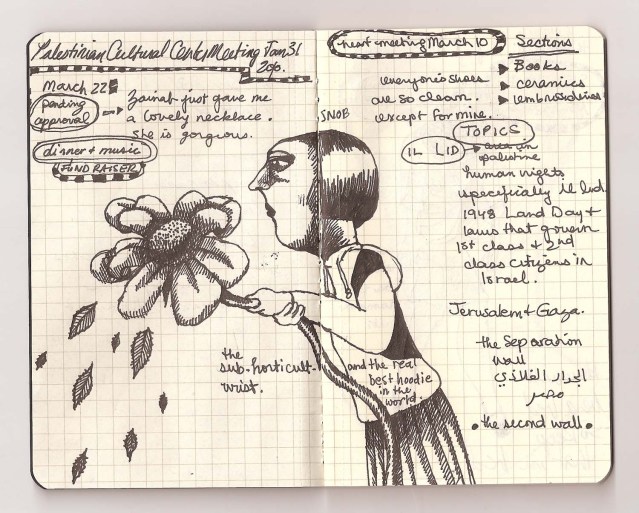 Palestinian Cultural Center Meeting Jan 31
2010.
March 22
pending
approval
Zainab just gave me
a lovely necklace.
she is gorgeous.
dinner & music
FUND RAISER
the
sub-horticult-
urist.
next meeting March 10
everyone's shoes
are so clean.
except for mine.
SNOB
Sections
Books
ceramics
embroideries
TOPICS
IL LID
palestine
human rights
specifically il lid.
1948 Land Day &
laws that govern
1st class & 2nd
class citizens in
Israel.
Jerusalem & Gaza.
the separation
wall
الجدار الفولاذي
مصر
• the second wall •
and the real
best hoodie
in the
world.